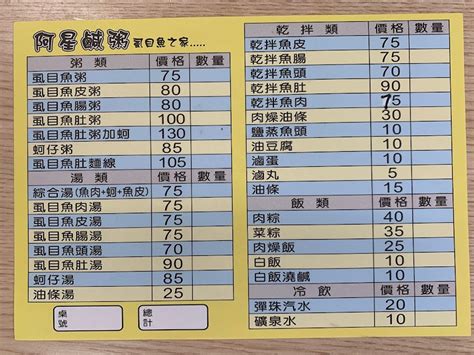 阿星鹹粥 虱目魚之家.....
粥類 價格 數量
虱目魚粥 75
虱目魚皮粥 80
虱目魚腸粥 80
虱目魚肚粥 100
虱目魚肚粥加蚵 130
蚵仔粥 85
虱目魚肚麵線 105
湯類 價格 數量
綜合湯(魚肉+蚵+魚皮) 75
虱目魚肉湯 75
虱目魚皮湯 75
虱目魚腸湯 75
虱目魚頭湯 70
虱目魚肚湯 90
蚵仔湯 75
油條湯 25
桌號
總計
乾拌類 價格 數量
乾拌魚皮 75
乾拌魚腸 75
乾拌魚頭 70
乾拌魚肚 90
乾拌魚肉 75
肉燥油條 30
鹽蒸魚頭 10
油豆腐 10
滷蛋 10
滷丸 5
油條 15
飯類 價格 數量
肉粽 40
菜粽 35
肉燥飯 25
白飯 10
白飯澆鹹 10
冷飲 價格 數量
彈珠汽水 20
礦泉水 10